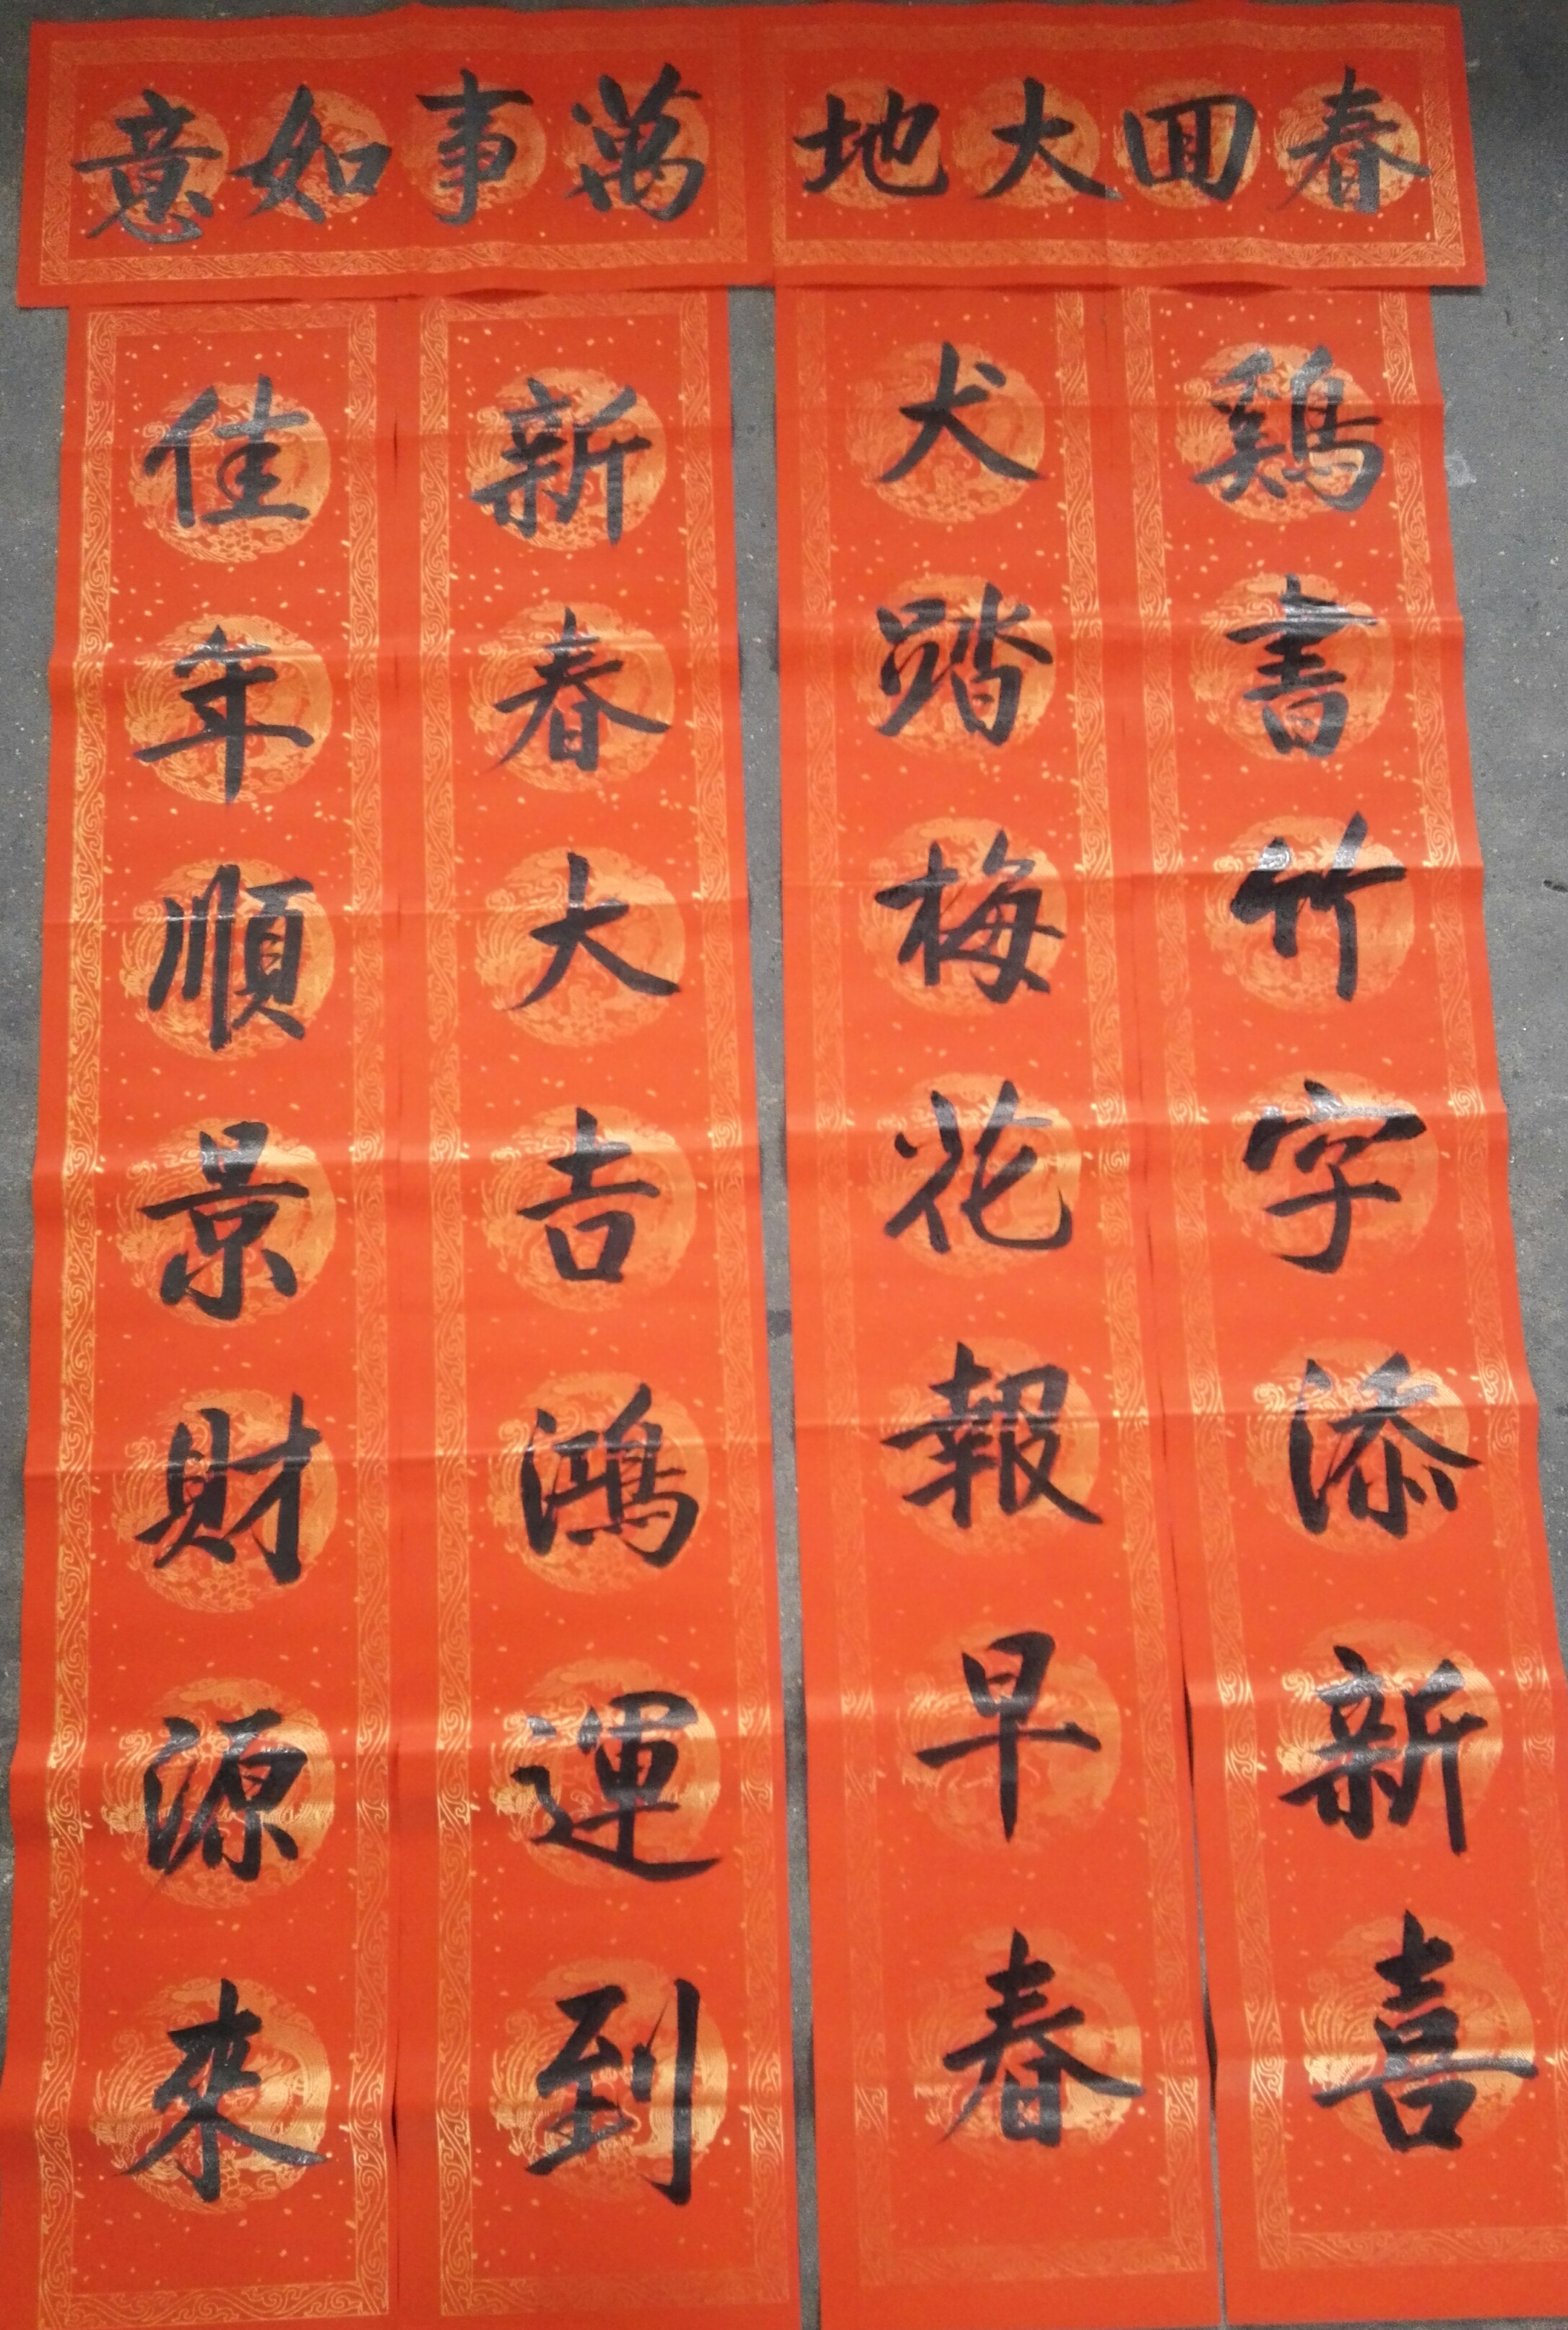 春回大地
鷄書竹字添新喜
犬踏梅花報早春
萬事如意
新春大吉鴻運到
佳年順景財源來